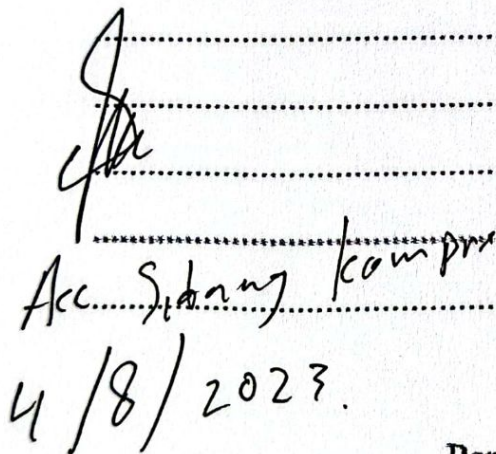 Acc Sidang kompre
4/8/2023.